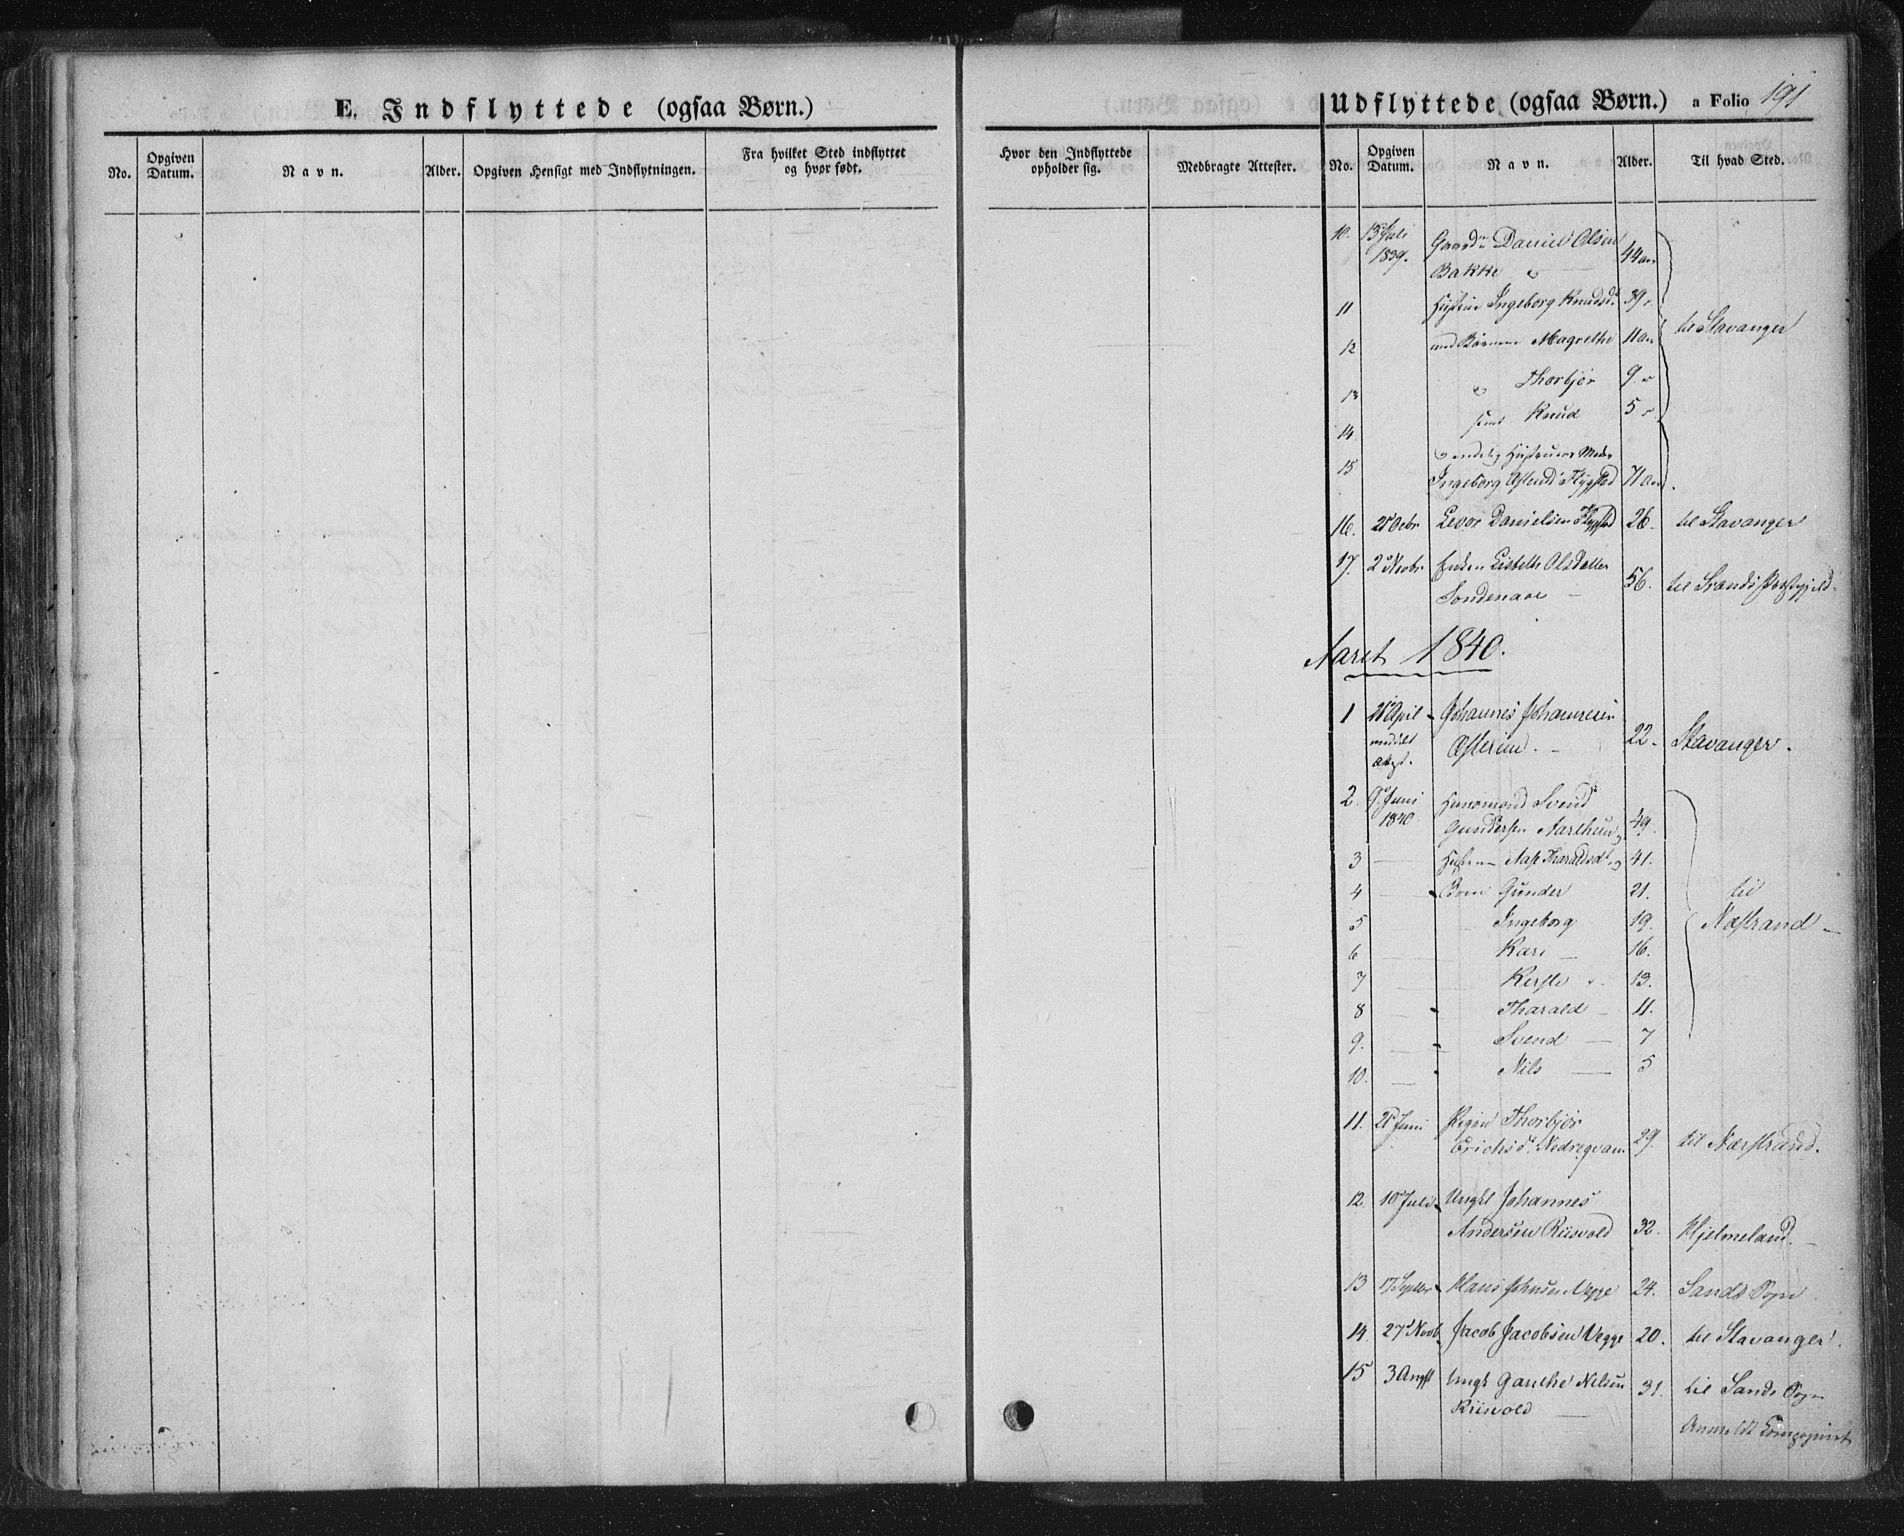 E. Indflyttede (ogsaa Børn.)
No.
Opgiven Datum.
Navn.
Alder.
Opgiven Hensigt med Indflytningen.
Fra hvilket Sted indflyttet og hvor født.
Hvor den Indflyttede opholder sig.
Medbragte Attester.
Udflyttede (ogsaa Børn.) a Folio 191
No.
Opgiven Datum.
Navn.
Alder.
Til hvad Sted.
10. 13 Juli Daniel Olsen
1839. Bakke 44
11 Ingeborg Knudsd. 39
til Stavanger
12 med Børnene Magrethe 11
13 Thorbjør 9
14 samt Knud 5
15
Ingeborg 71
16. Levor Danielsen 26. til Stavanger
17. 2 Novbr Lisbeth Olsdatter
Sondenaae 56. til
Aaret 1840.
1 April Johannes Johannesen
22. Stavanger.
2. 9 Juni Svend
1840. Gundersen Aarthun 49.
3 Tharaldsd. 41.
4 Børn Gunder 21. til
5 Ingeborg 19. Næstrand
6 Kari 16.
7 13.
8 Tharald 11.
9. Svend 7
10. Nils 5
11. Juni Pigen Thorbjør
Erichsd. Nedregvam 29. til Nærstrand.
12. 10 Juli Ungkl Johannes
Andersen Riisvold 32. Hjelmeland.
13 17 Septbr Johnsen Vegge 24. Sands Sogn
14. 27 Novb. Jacob Jacobsen Vegge 20. til Stavanger.
15 3 Augst Ungk Nilsen 31. til Sands Sogn
Riisvold
Anmeldt